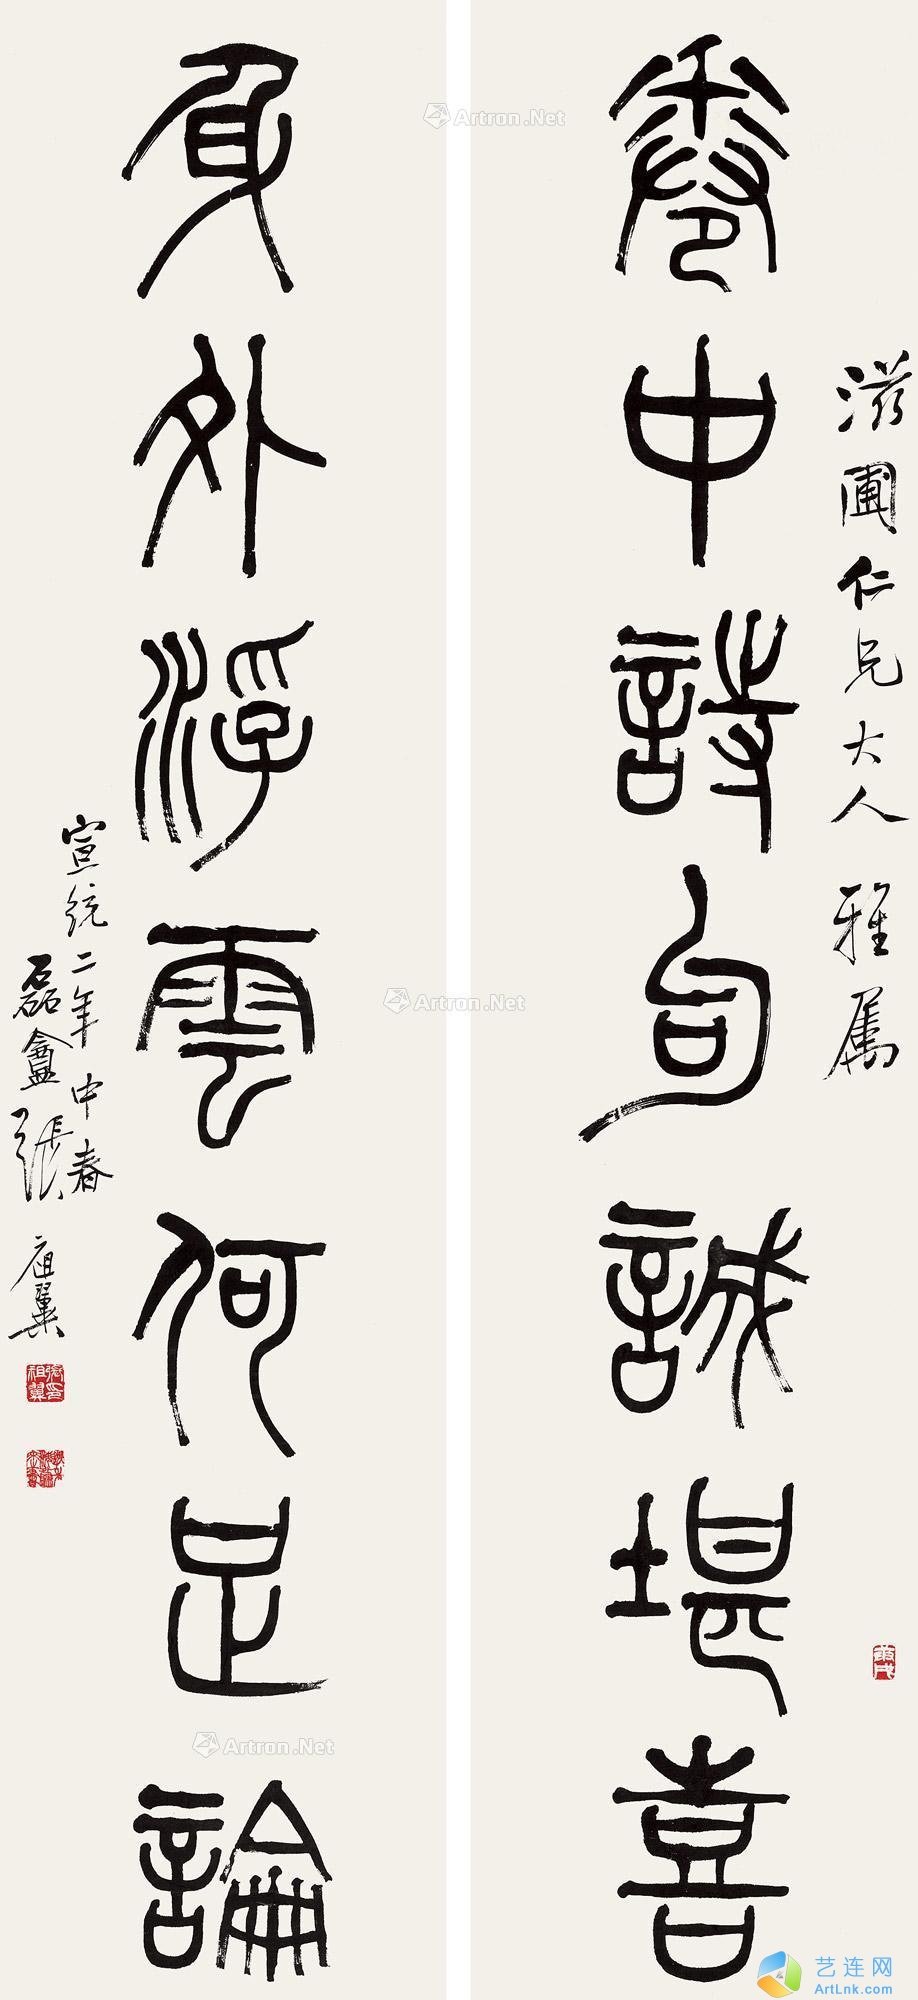 滋圃仁兄大人雅屬
卷中詩句誠堪喜
身外浮雲何足論
宣統二年中春
磊盦張祖翼
張祖翼印
Artron.Net
Artron.Net
Artron.Net
艺连网
ArtLnk.com